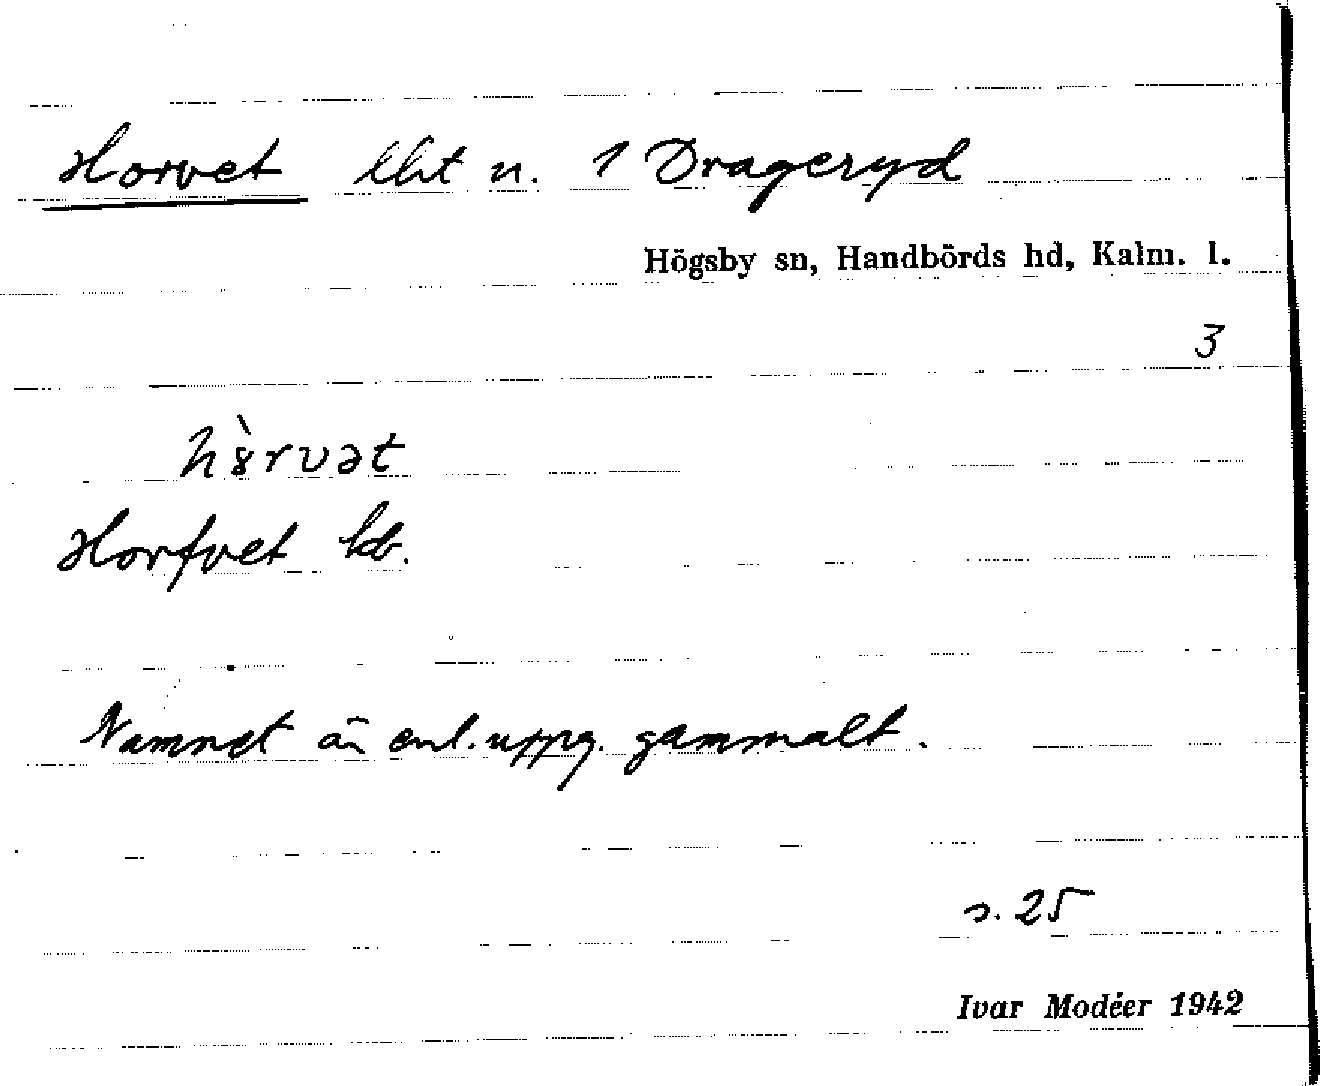 Horvet lht n. 1 Drageryd
Högsby sn, Handbörds hd, Kalm. l.
3
hòrvət
Horfvet kb.
Namnet är enl. uppg. gammalt.
s. 25
Ivar Modéer 1942